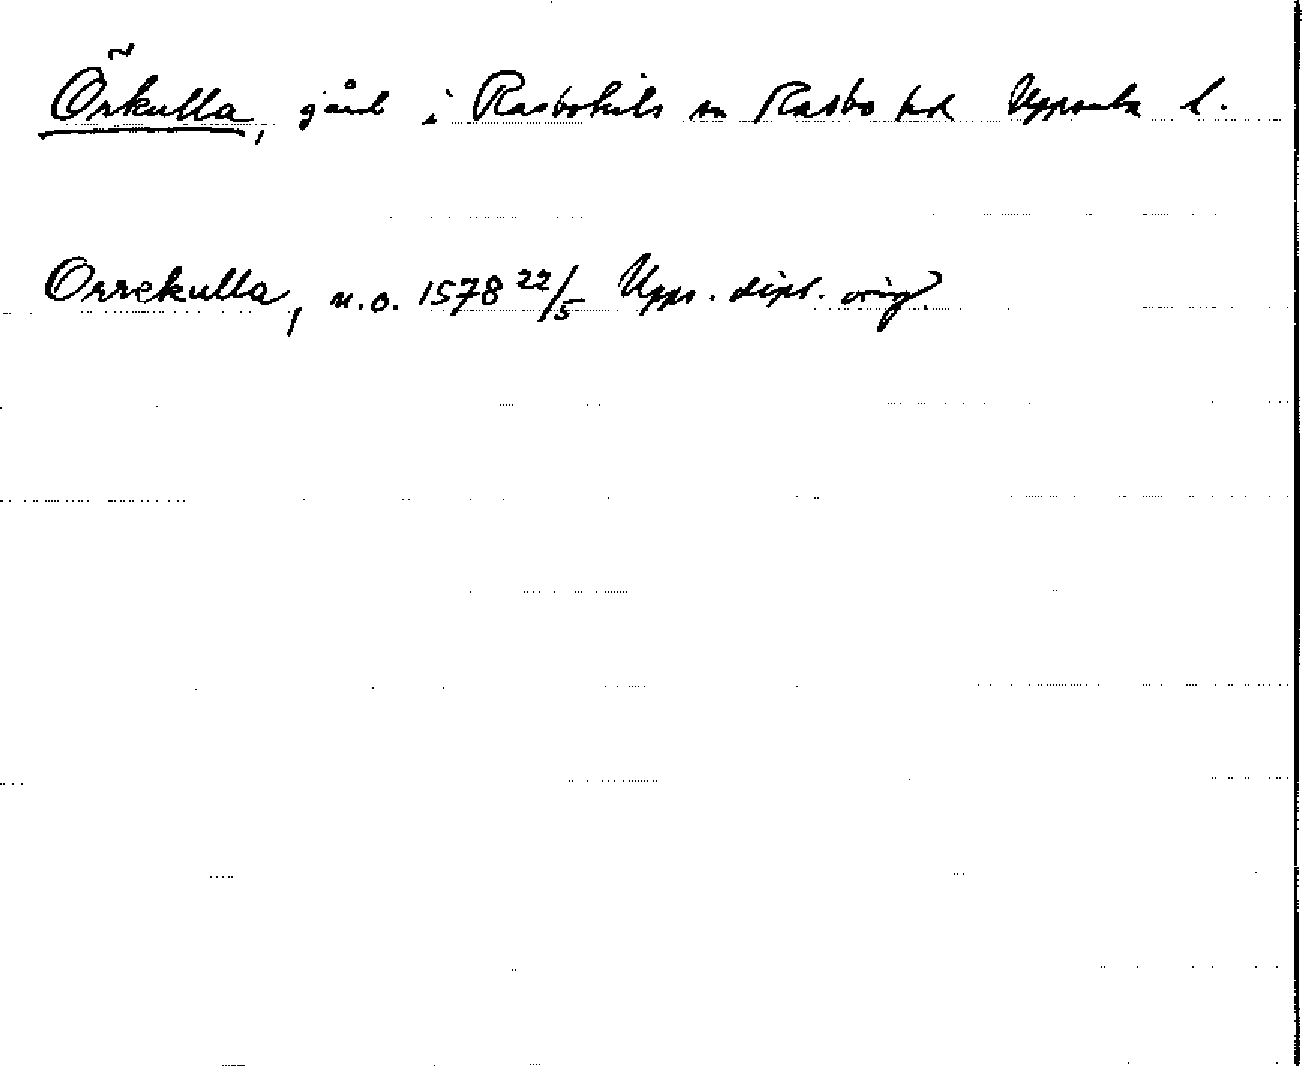 Örkulla, gård i Rasbokils sn Rasbo hd Uppsala l.
Orrekulla, n.o. 1578 22/5 Upps. dipl. orig.